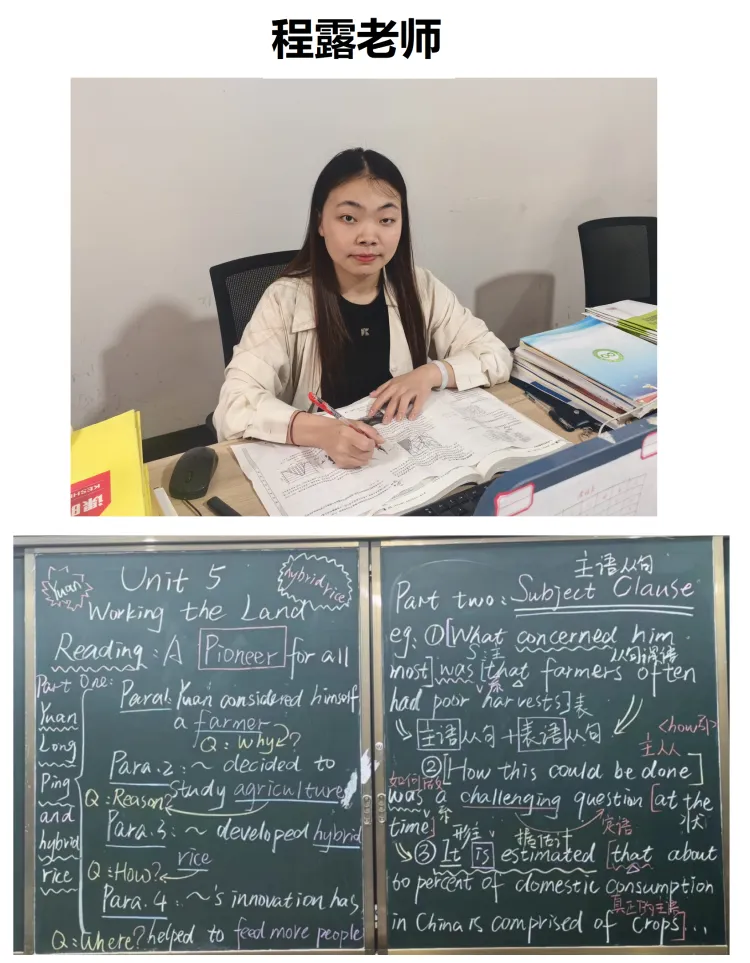 程露老师
Unit 5
Yuan
hybrid rice
Working the Land
Reading: A Pioneer for all
Part One:
Yuan
Long
Ping
and
hybrid
rice
Para1: Yuan considered himself
a farmer
Q: Why?
Para.2: ~ decided to
study agriculture
Q: Reason?
Para.3: ~ developed hybrid
rice
Q: How?
Para.4: ~'s innovation has
Q: Where? helped to feed more people
主语从句
Part two: Subject Clause
eg: ①[What concerned him
S:主
从句谓语
most] was [that farmers often
系
had poor harvests]表
主语从句+表语从句
<how引>
主从从
②[How this could be done]
如何做
was a challenging question [at the
time.]
系
定语
状
形主
据估计
③ It is estimated [that about
60 percent of domestic consumption
真正的主语
in China is comprised of crops]...